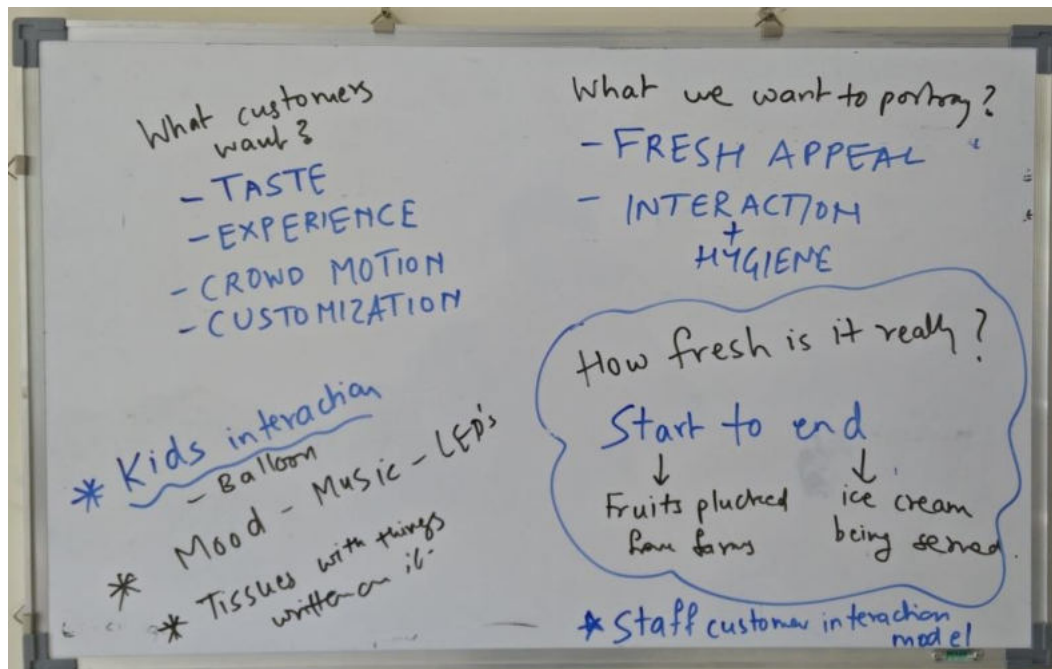 What customers
want?
- TASTE
- EXPERIENCE
- CROWD MOTION
- CUSTOMIZATION
* Kids interaction
- Balloon
* Mood - Music - LED's
* Tissues with things
written on it.
What we want to portray?
- FRESH APPEAL
- INTERACTION
+
HYGIENE
How fresh is it really?
Start to end
↓ ↓
Fruits plucked
from farms
ice cream
being served.
* Staff customer interaction
model